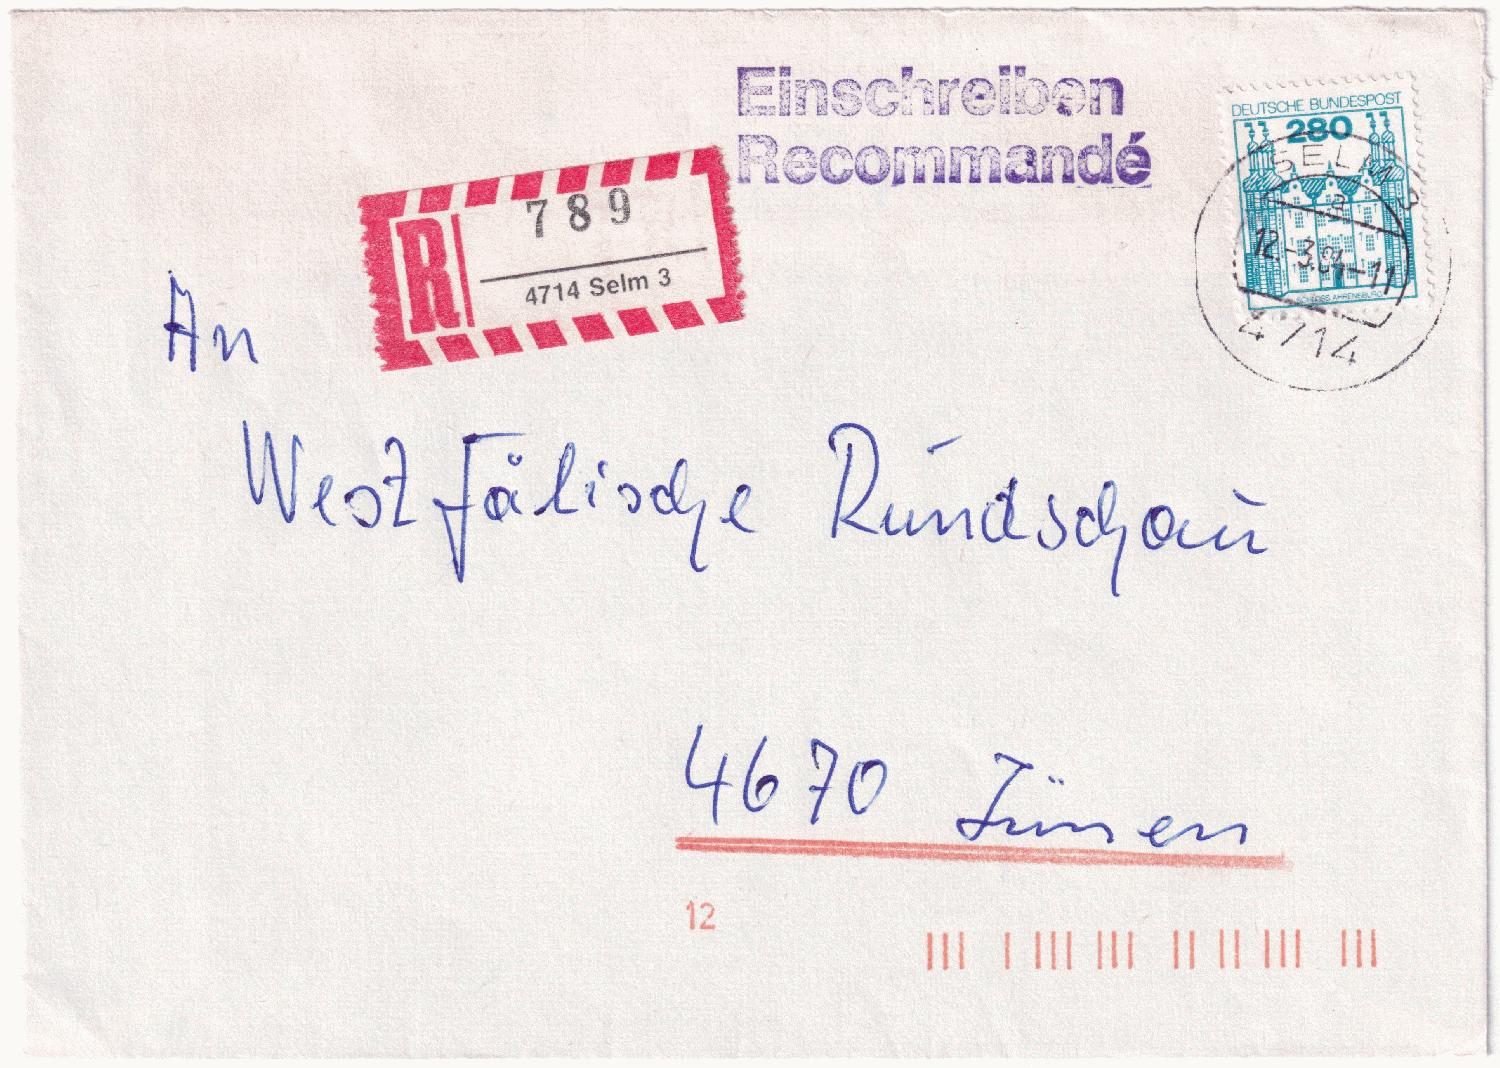 Einschreiben
Recommandé
DEUTSCHE BUNDESPOST
280
SCHLOSS AHRENSBURG
SELM 3
a
12.-3.91-11
4714
R
789
4714 Selm 3
An
Westfälische Rundschau
4670 Lünen
12